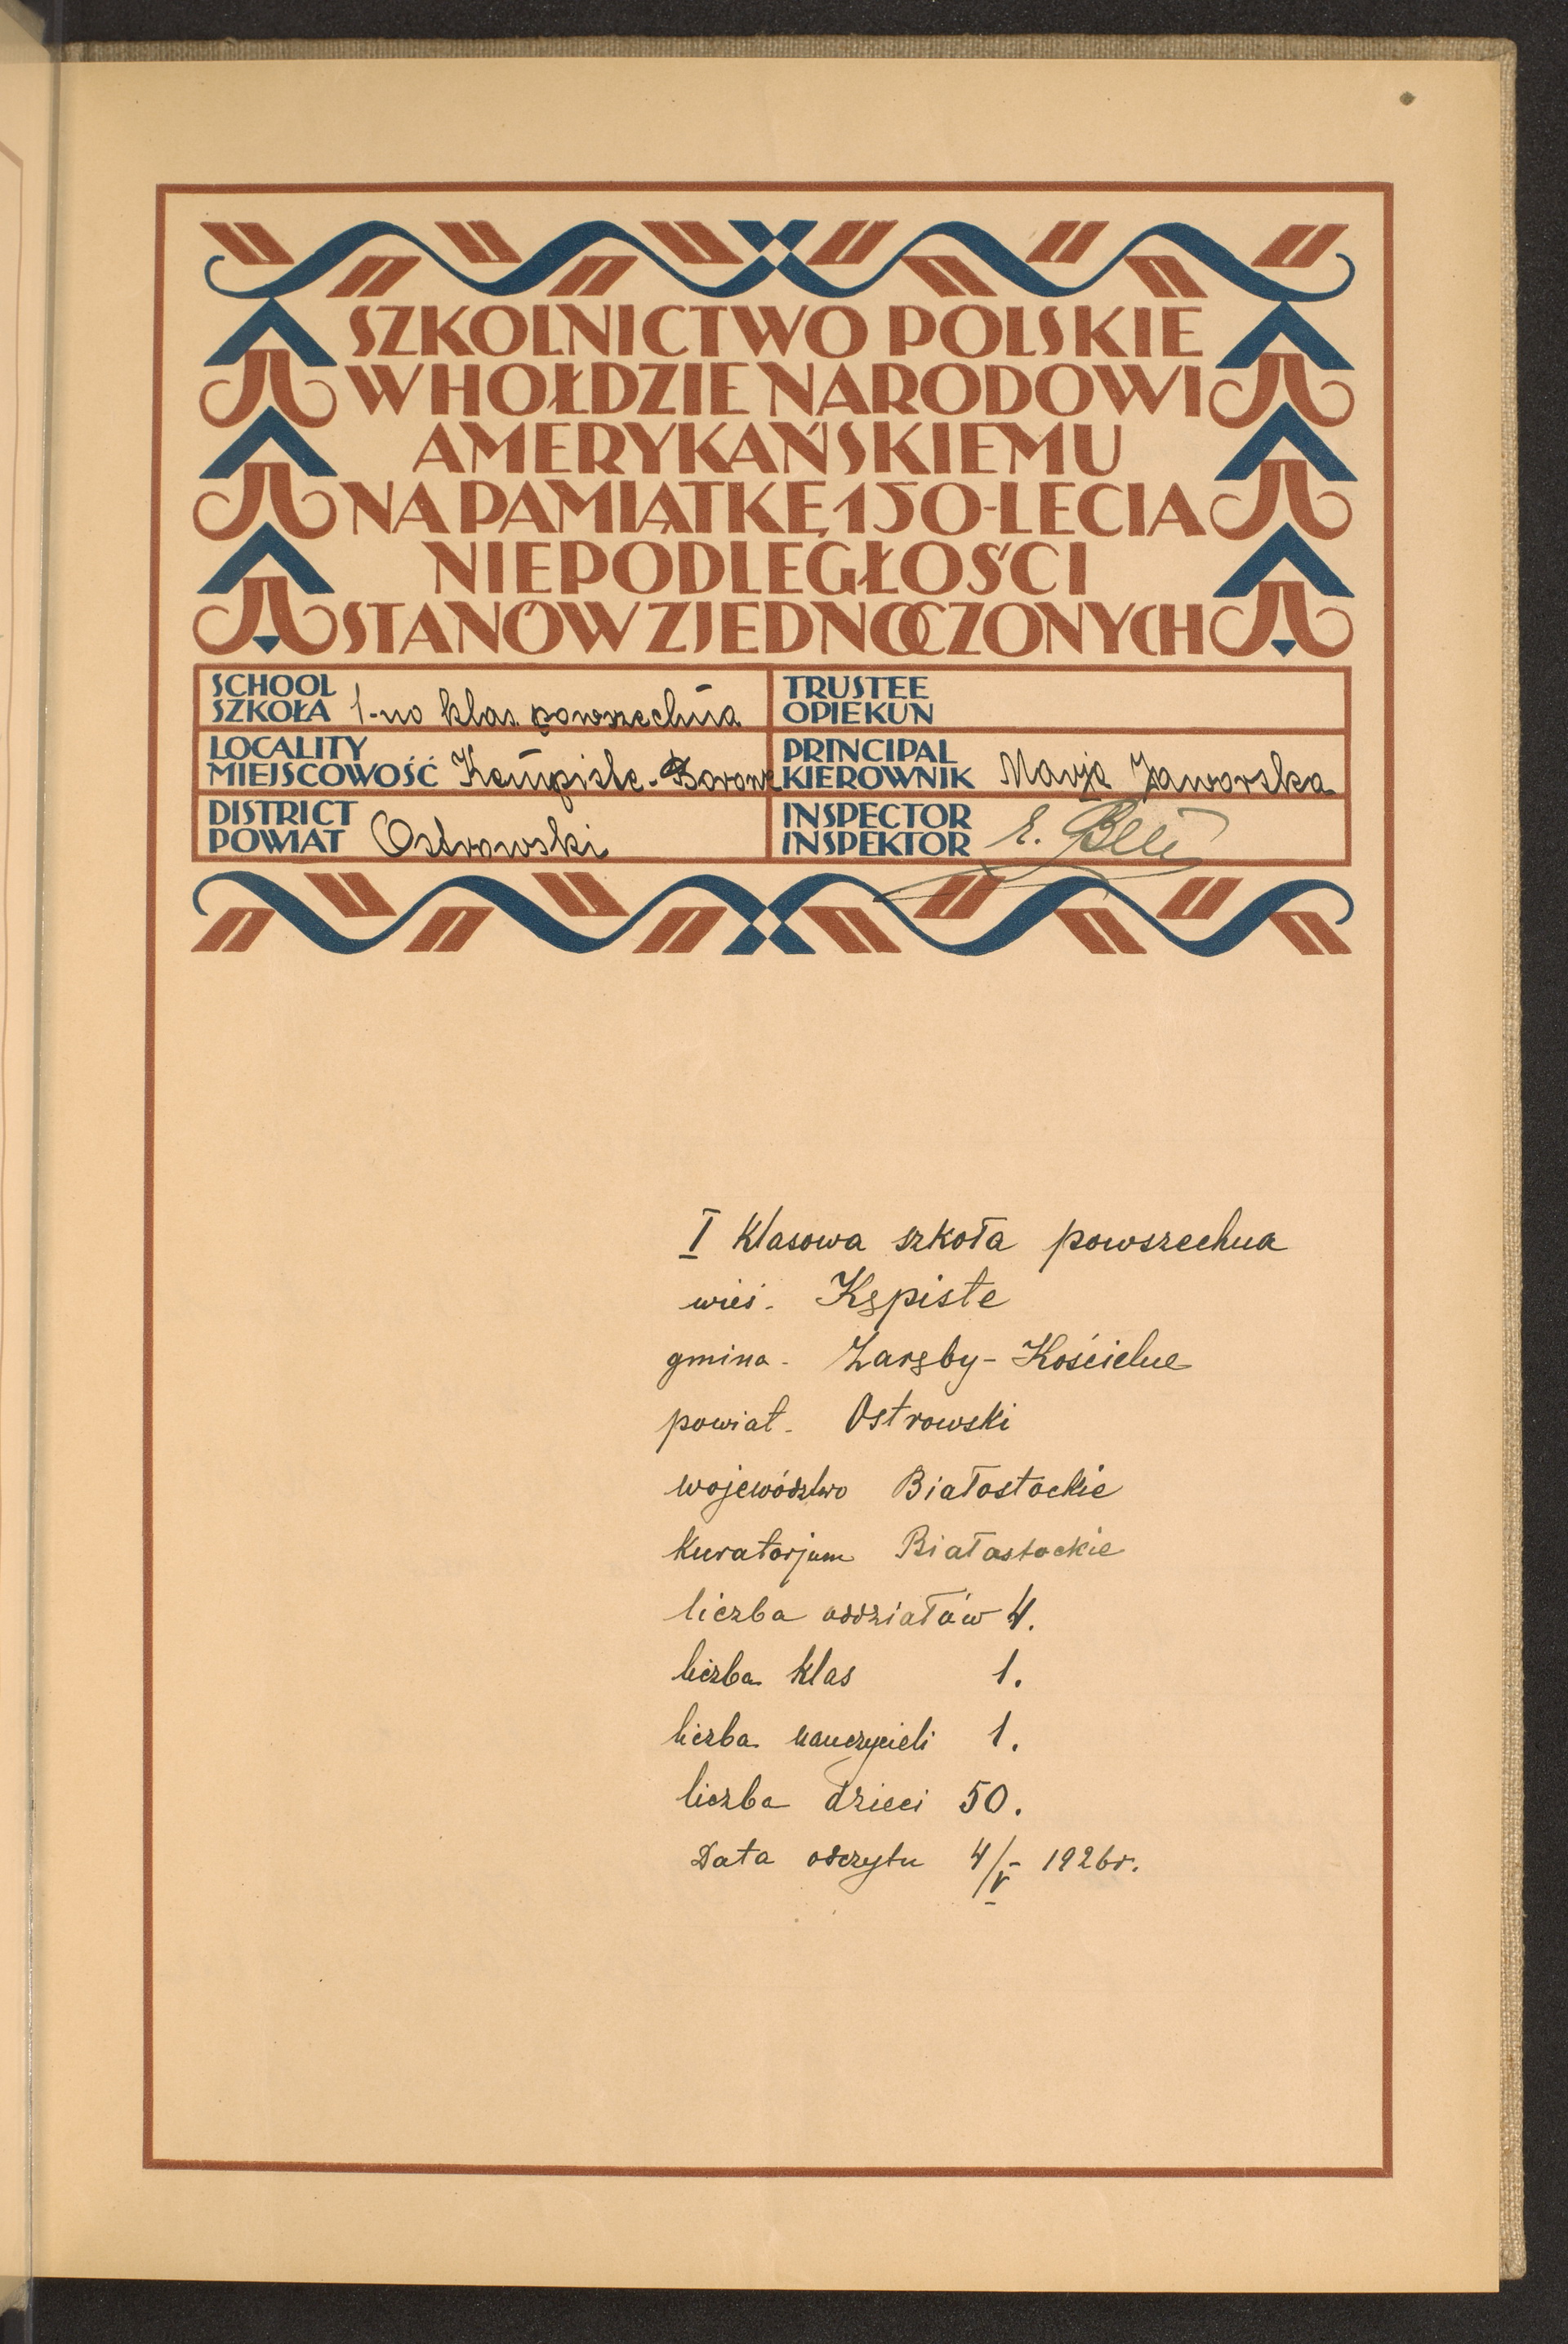 SZKOLNICTWO POLSKIE
W HOŁDZIE NARODOWI
AMERYKAŃSKIEMU
NA PAMIĄTKĘ 150-LECIA
NIEPODLEGŁOŚCI
STANÓW ZJEDNOCZONYCH
SCHOOL
SZKOŁA 1-no klas. powszechna
TRUSTEE
OPIEKUN
LOCALITY
MIEJSCOWOŚĆ Kempiste-Borowe
PRINCIPAL
KIEROWNIK Marja Jaworska
DISTRICT
POWIAT Ostrowski
INSPECTOR
INSPEKTOR E.
I klasowa szkoła powszechna
wieś. Kępiste
gmina - Zaręby-Kościelne
powiat - Ostrowski
województwo Białostockie
Kuratorjum Białostockie
liczba oddziałów 4.
liczba klas 1.
liczba nauczycieli 1.
liczba dzieci 50.
Data odczytu 4/V 1926r.